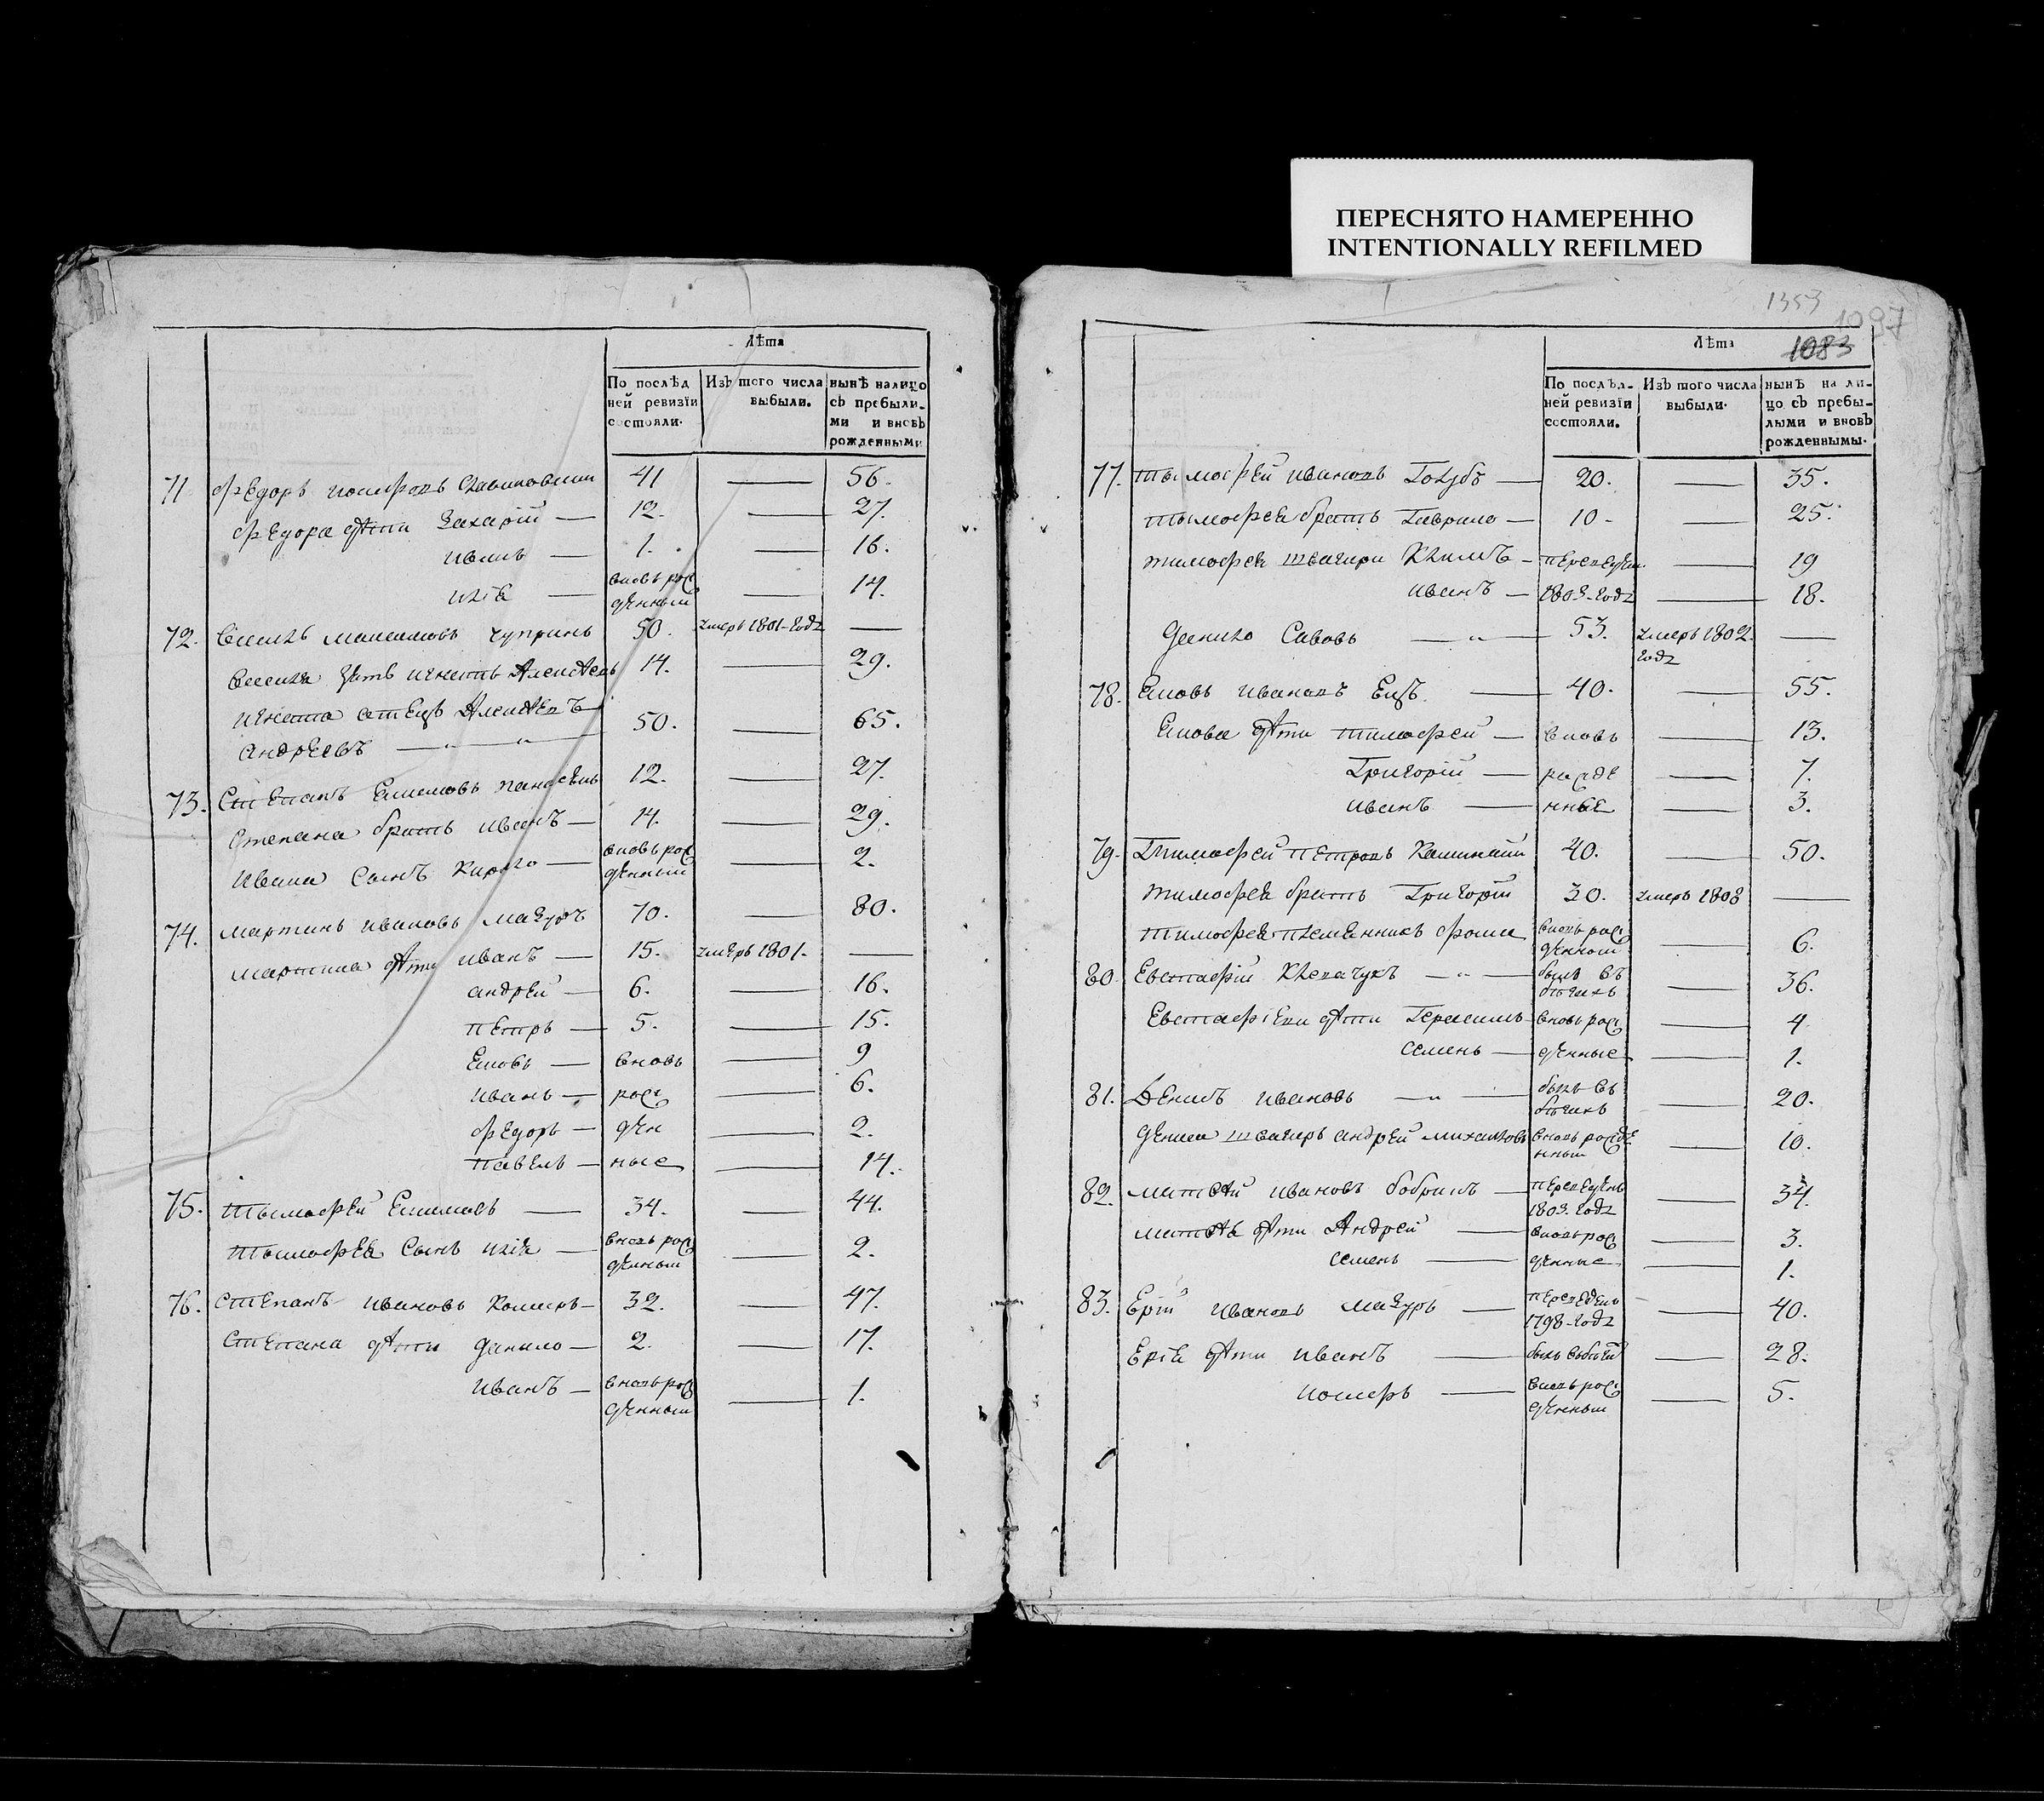 ПЕРЕСНЯТО НАМЕРЕННО
INTENTIONALLY REFILMED
Лѣта
По послѣд
ней ревизїи
состояли.
Изъ того числа
выбыли.
нынѣ налицо
съ пребыли-
ми и вновь
рожденными
71. Федоръ 41 — 56.
Федора дѣти Захарїй — 12. — 27.
иванъ — 1. — 16.
илїя — вновь рож
денный — 14.
72. Василь Максимовъ Чупринъ 50. умеръ 1801-года —
Василя зять игнатъ Алексѣевъ 14. — 29.
игната отецъ Алексѣй
андреевъ — 50. — 65.
73. Степанъ Екимовъ 12. — 27.
Степана братъ иванъ — 14. — 29.
Ивана Сынъ Кирило — вновь рож
денный — 2.
74. мартинъ ивановъ мазуръ 70. — 80.
мартина дѣти иванъ — 15. умеръ 1801. —
андрей — 6. — 16.
петръ — 5. — 15.
Яковъ — вновь — 9
иванъ — рож — 6.
федоръ — ден — 2.
павелъ — ные — 14.
75. тымофей Екимовъ — 34. — 44.
тымофея Сынъ илїя — вновь рож
денный — 2.
76. Степанъ ивановъ — 32. — 47.
Степана дѣти данило — 2. — 17.
иванъ — вновь рож
денный — 1.
1353
1097
1083
Лѣта
По послѣд-
ней ревизїи
состояли.
Изъ того числа
выбыли.
нынѣ на ли-
цо съ пребы-
лыми и вновь
рожденнымы.
77. тымофей ивановъ Голубъ — 20. — 35.
тымофея братъ Гаврило — 10 — — 25.
тимофея швагири Климъ — переведены — 19
иванъ — 1803-года — 18.
данило Савовъ — 53. умеръ 1802.
года —
78. Яковъ ивановъ Ецъ — 40. — 55.
Якова дѣти тимофей — вновь — 13.
Григорїй — рожде — 7.
иванъ — нные — 3.
79. Тимофей петровъ 40. — 50.
тимофея братъ Григорїй 30. умеръ 1808 —
тимофея племянникъ фома вновь рож
денный — 6.
80. Евстафїй Клепачукъ — былъ въ
бѣгахъ — 36.
Евстафїева дѣти Герасимъ вновь рож — 4
семенъ — денные — 1.
81. Денисъ ивановъ — былъ въ
бѣгахъ — 20.
дениса швагиръ андрей михаиловъ вновь рожде
нный — 10.
82. матвѣй ивановъ бобрикъ — переведенъ
1803. года — 34.
матвѣя дѣти Андрей — вновь рож — 3.
семенъ — денные — 1.
83. Ерїй ивановъ мазуръ — переведенъ
1798-года — 40.
Ерїя дѣти иванъ — былъ — 28.
иосифъ — вновь рож
денный — 5.